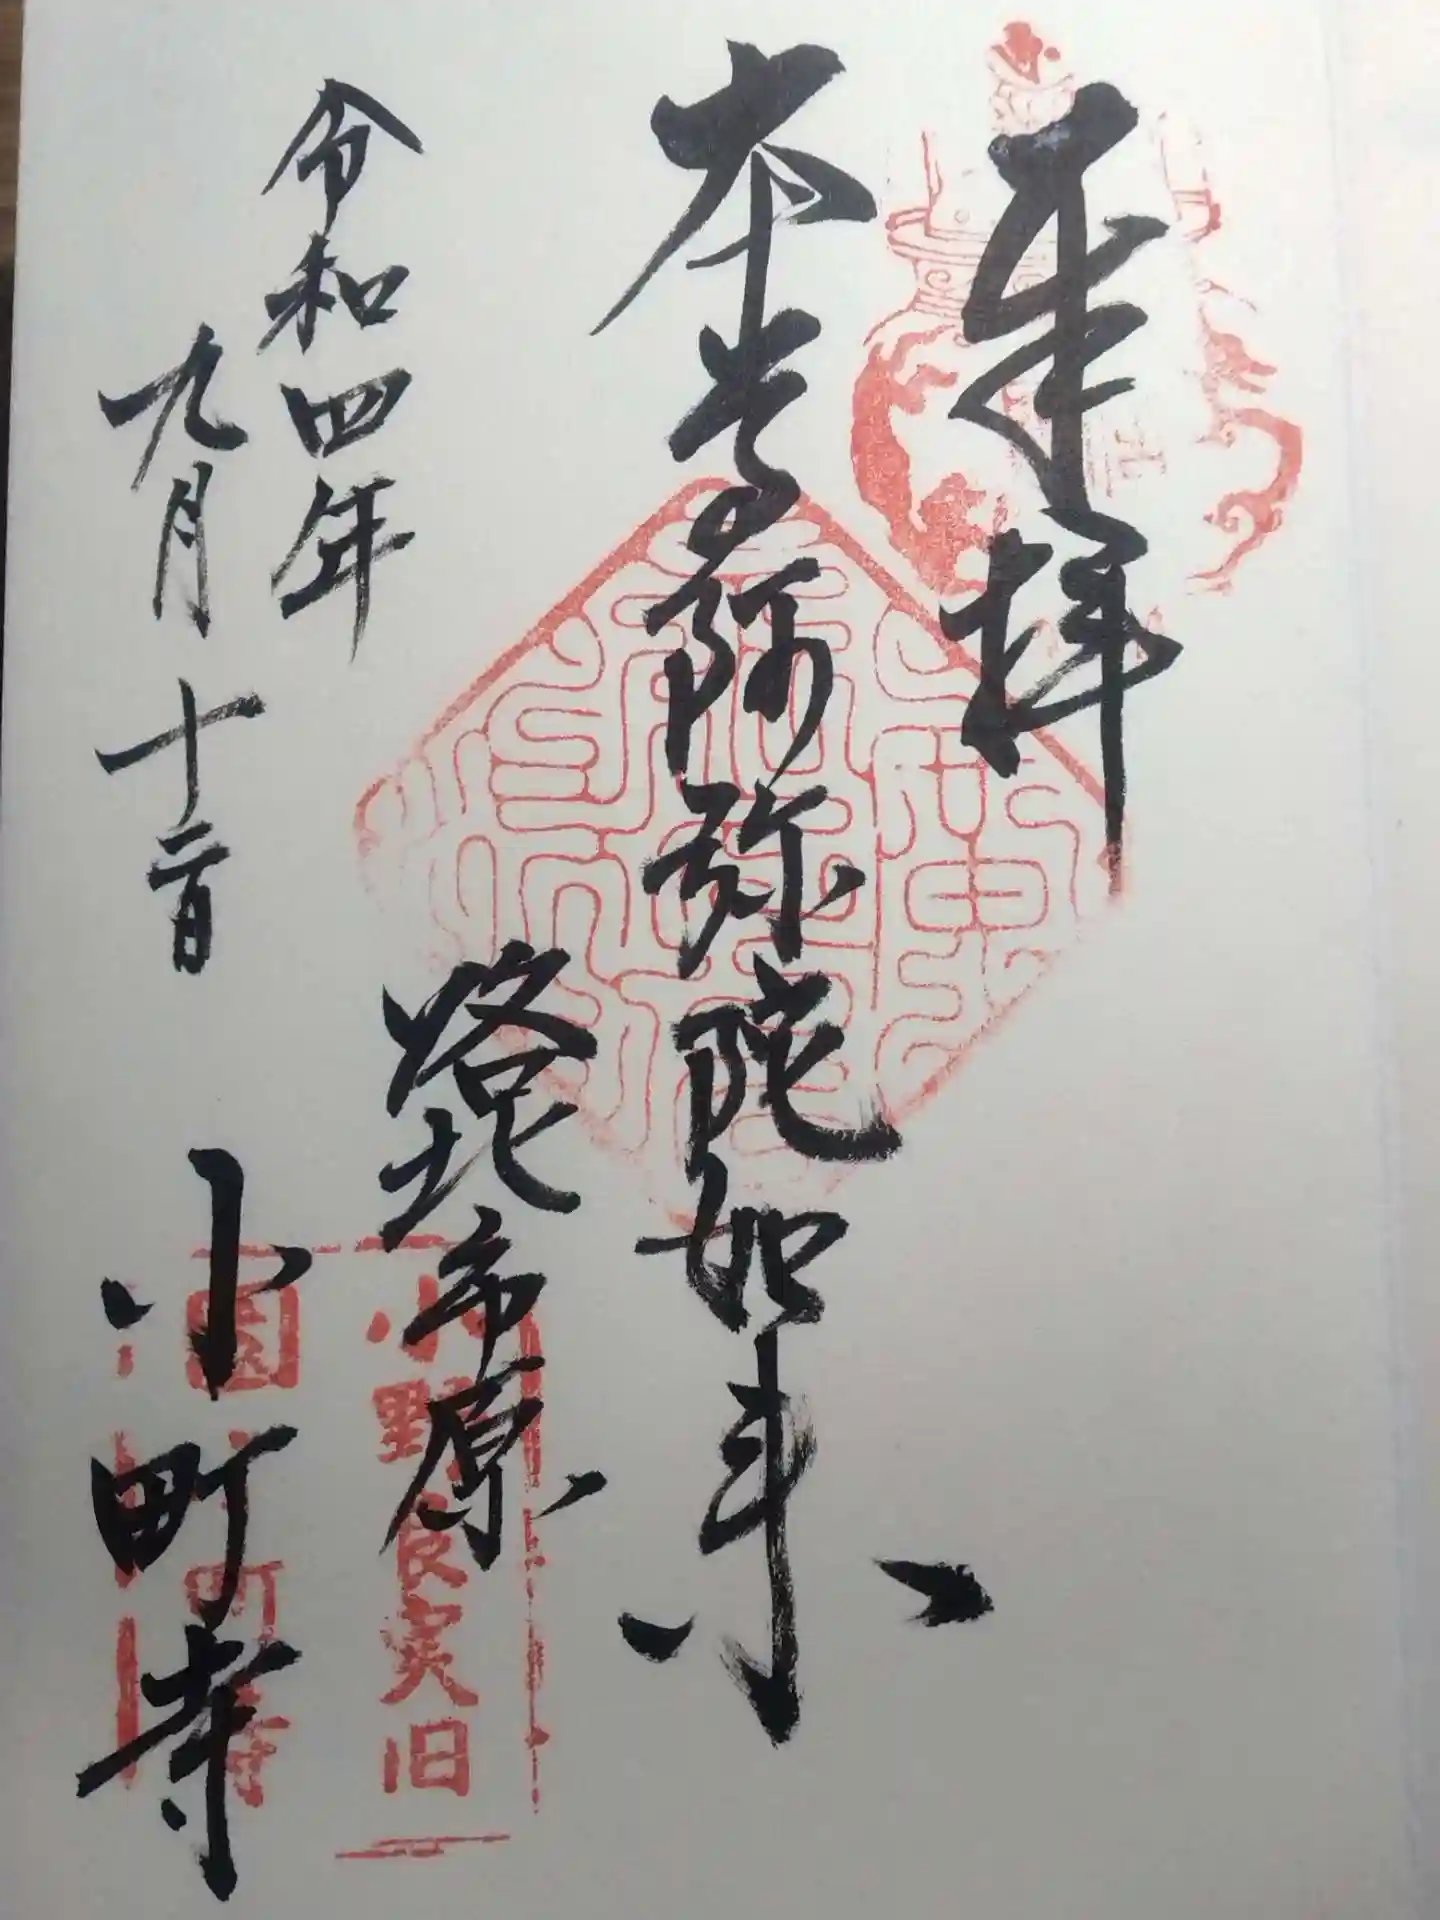 奉拝
本尊阿弥陀如来
洛北市原
小町寺
令和四年
九月十二日
小野良実旧
園小町寺